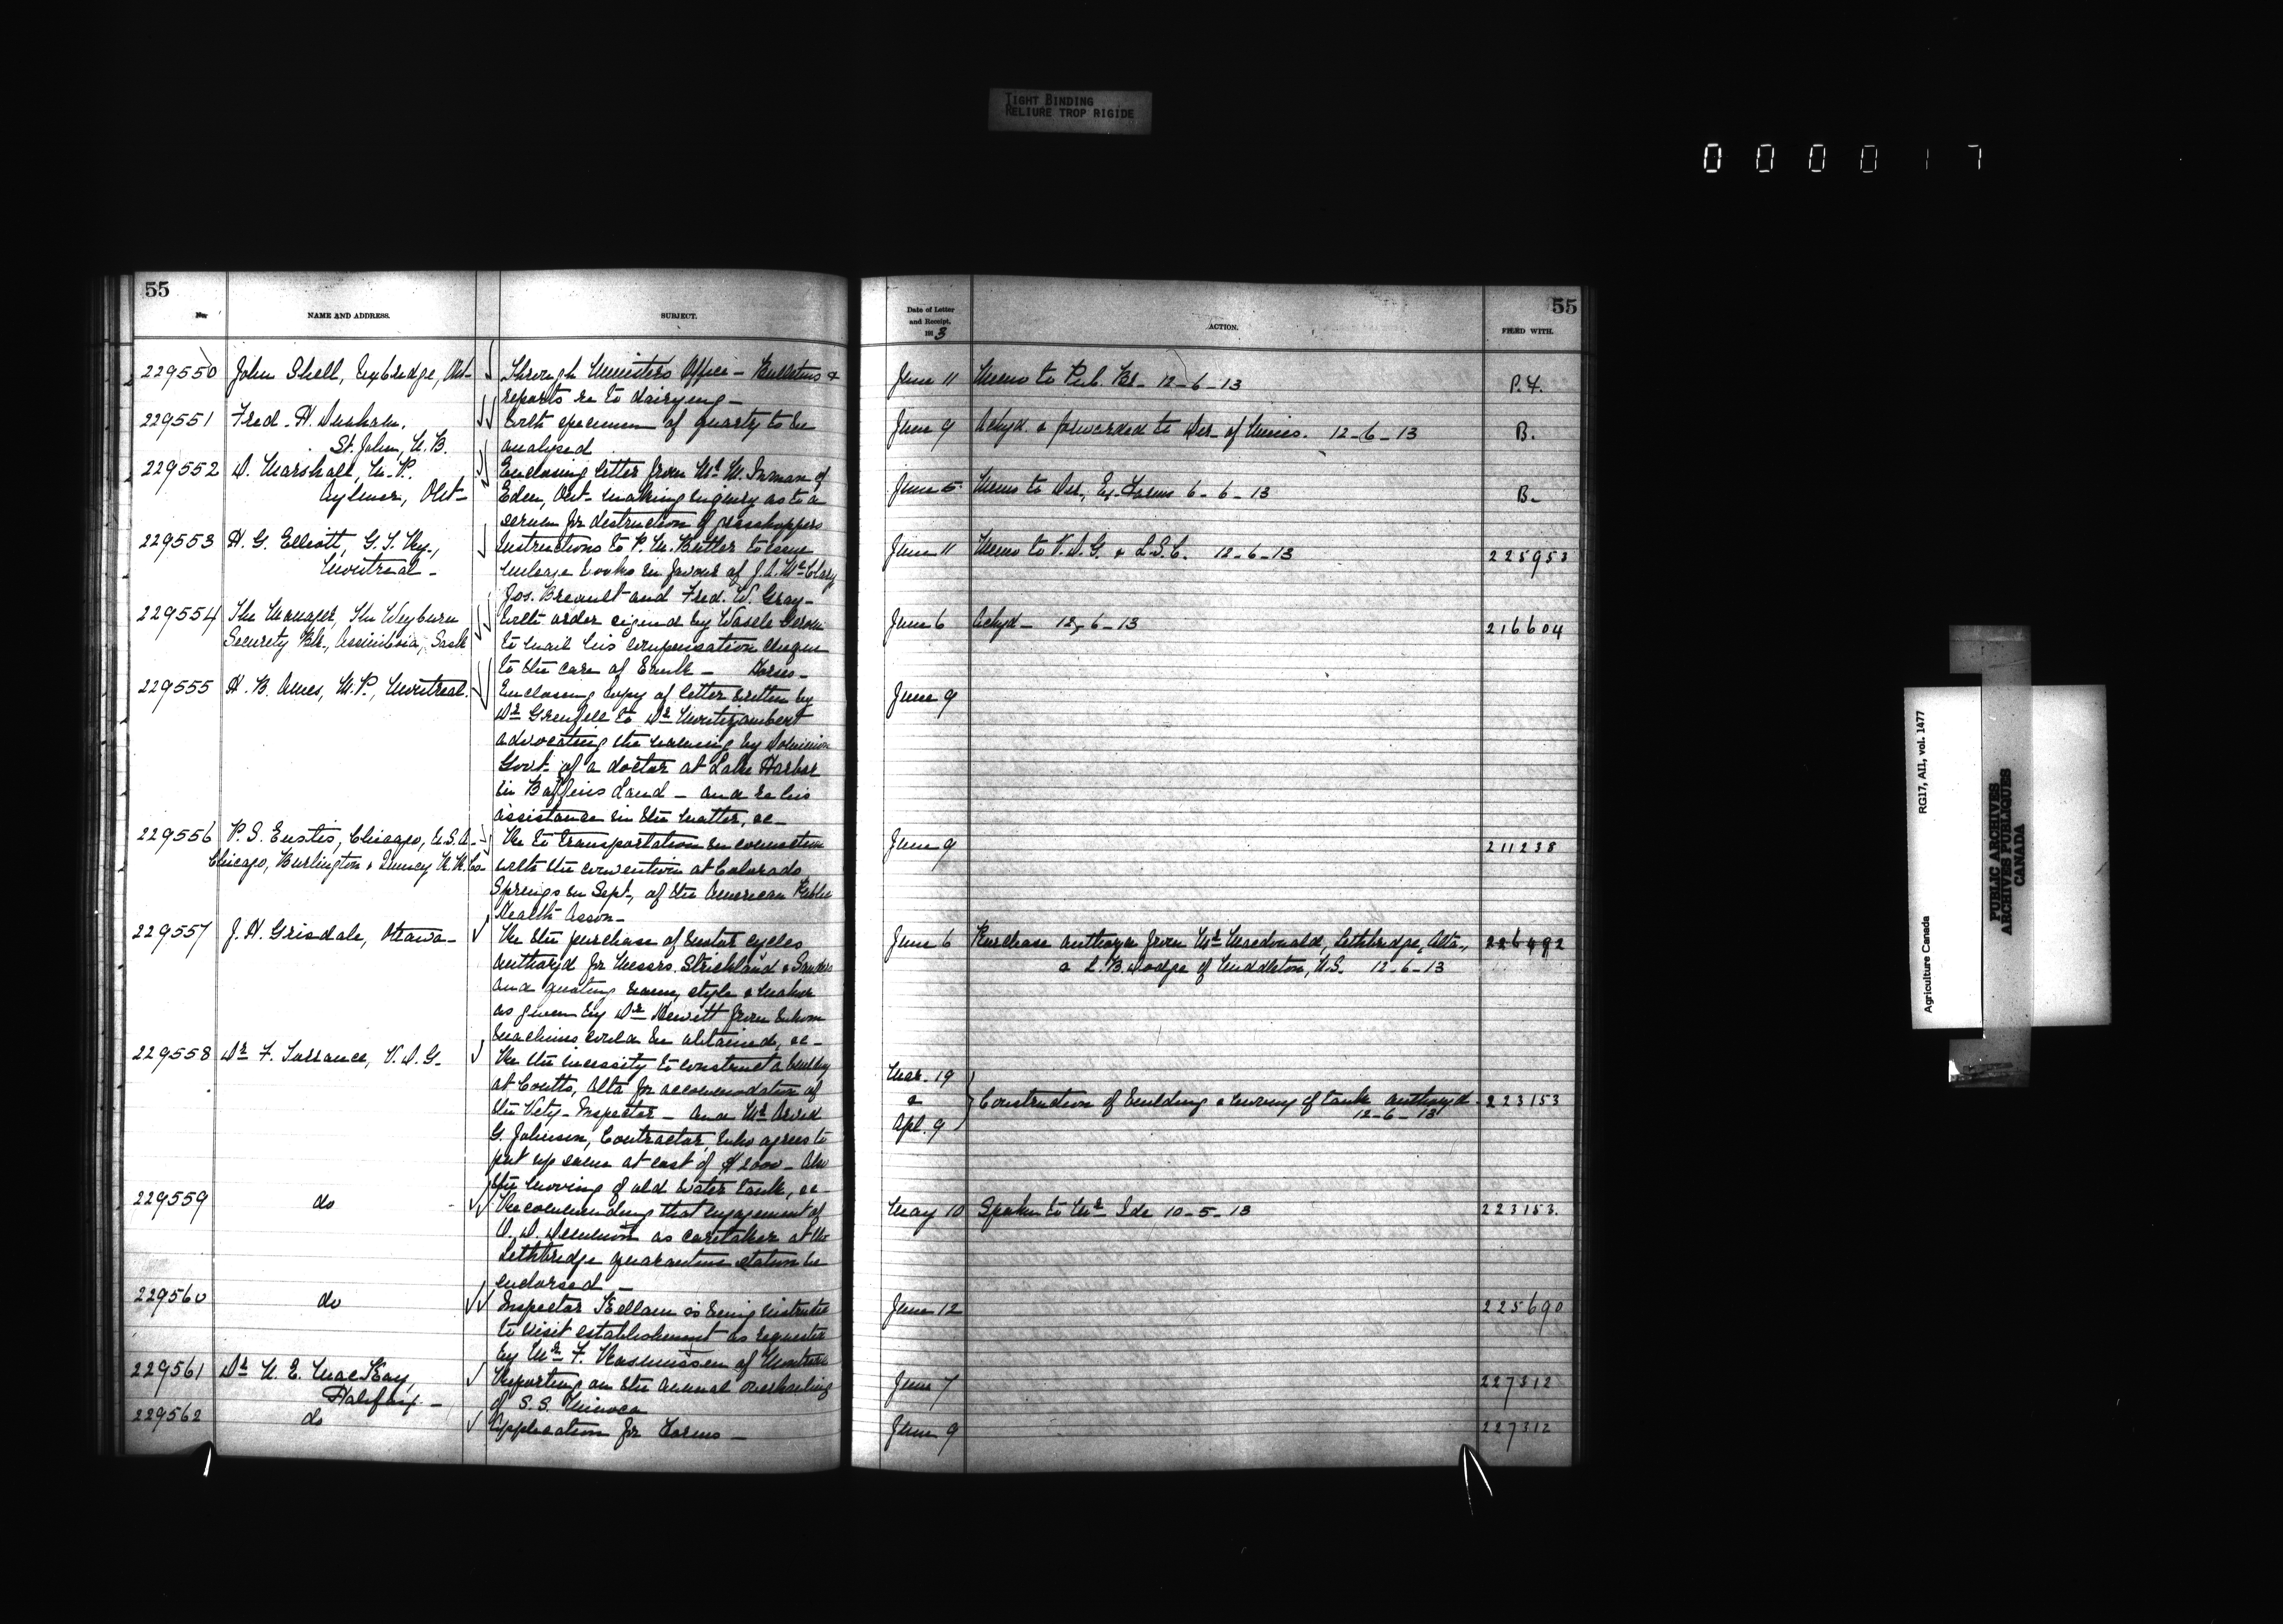 TIGHT BINDING
RELIURE TROP RIGIDE
000017
55
No.
NAME AND ADDRESS.
SUBJECT.
229550 John Shell, Uxbridge, Ont- Through Ministers Office - Bulletins &
reports re to dairying -
229551 Fred. H. Dunham, With specimen of quartz to be
St. John, N.B. analyzed
229552 D. Marshall, M.P. Enclosing letter from Mr W. Inman of
Aylmer, Ont- Eden, Ont- making enquiry as to a
serum for destruction of grasshoppers
229553 H. G. Elliott, G. T. Ry., Instructions to P. M. Buttler to issue
Montreal - mileage books in favour of J. A. McClary
Jos. Breault and Fred. W. Gray -
229554 The Manager, The Weyburn With order signed by Wasele
Security Bk., Assiniboia, Sask to mail his compensation cheque
to the care of Bank - Horses -
229555 H. B. Ames, M.P., Montreal. Enclosing copy of letter written by
Dr Grenfell to Dr Montizambert
advocating the naming by Dominion
Govt- of a doctor at Lake Harbor
in Baffins Land - and re his
assistance in the matter, &c -
229556 P. S. Eustis, Chicago, U.S.A. - Re to transportation in connection
Chicago, Burlington & Quincy R.R. Co- with the convention at Colorado
Springs in Sept., of the American Public
Health Asson -
229557 J. H. Grisdale, Ottawa - Re the purchase of motor cycles
authorzd for Messrs. Strickland & Sanders
and quoting name, style & maker
as given by Dr Hewitt from whom
machines could be obtained, &c -
229558 Dr F. Torrance, V.D.G. Re the necessity to construct a building
at Coutts, Alta for accommodation of
the Vety- Inspector - and Mr Arvid
G. Johnson, Contractor, who agrees to
put up same at cost of $2000 - Also
the moving of old water tank, &c -
229559 do Recommending that engagement of
as caretaker at the
Lethbridge quarantine station be
endorsed -
229560 do Inspector Kellam is being instructed
to visit establishment as requested
by Mr F. Rasmussen of Montreal
229561 Dr N. E. MacKay, Reporting on the annual overhauling
Halifax - of S.S. Minoca
229562 do Application for Forms -
Date of Letter
and Receipt,
1913
ACTION.
55
FILED WITH.
June 11 Memo to Pub. Br- 12-6-13 P.F.
June 9 Ackgd. & forwarded to Der- of Mines. 12-6-13 B.
June 5 Memo to Dir, Ex. Farms 6-6-13 B-
June 11 Memo to V.D.G. & L.S.C. 12-6-13 225953
June 6 Ackgd- 12-6-13 216604
June 9
June 9 211238
June 6 Purchase authorzd from Mr Macdonald, Lethbridge, Alta., 226492
& L. B. Dodge of Middleton, N.S. 12-6-13
Mar. 19
&
Apl. 9 Construction of building & moving of tank authorzd- 223153
12-6-13
May 10 Spoken to Mr Ide 10-5-13 223153.
June 12 225690
June 7 227312
June 9 227312
Agriculture Canada RG17, AII, vol. 1477
PUBLIC ARCHIVES
ARCHIVES PUBLIQUES
CANADA